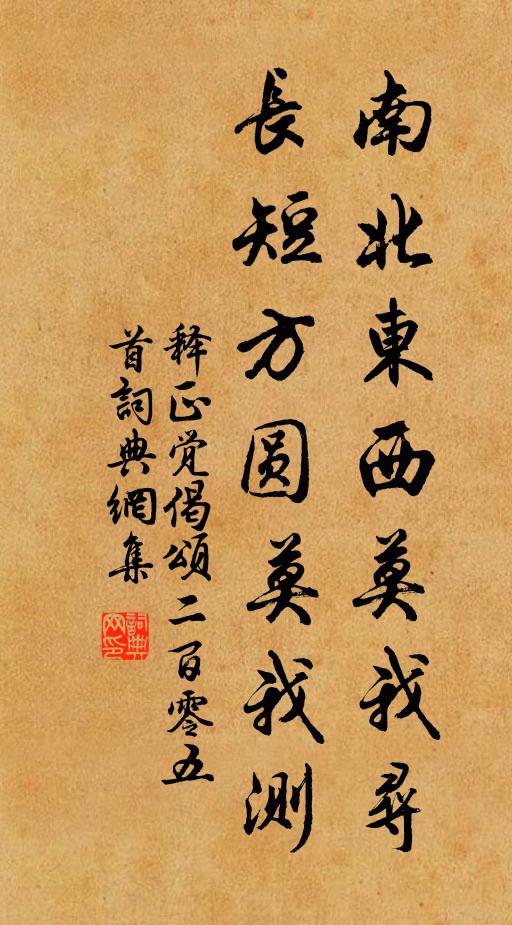 南北東西莫我尋
長短方圆莫我測
释正觉偈頌二百零五
首詞典網集
詞典网印